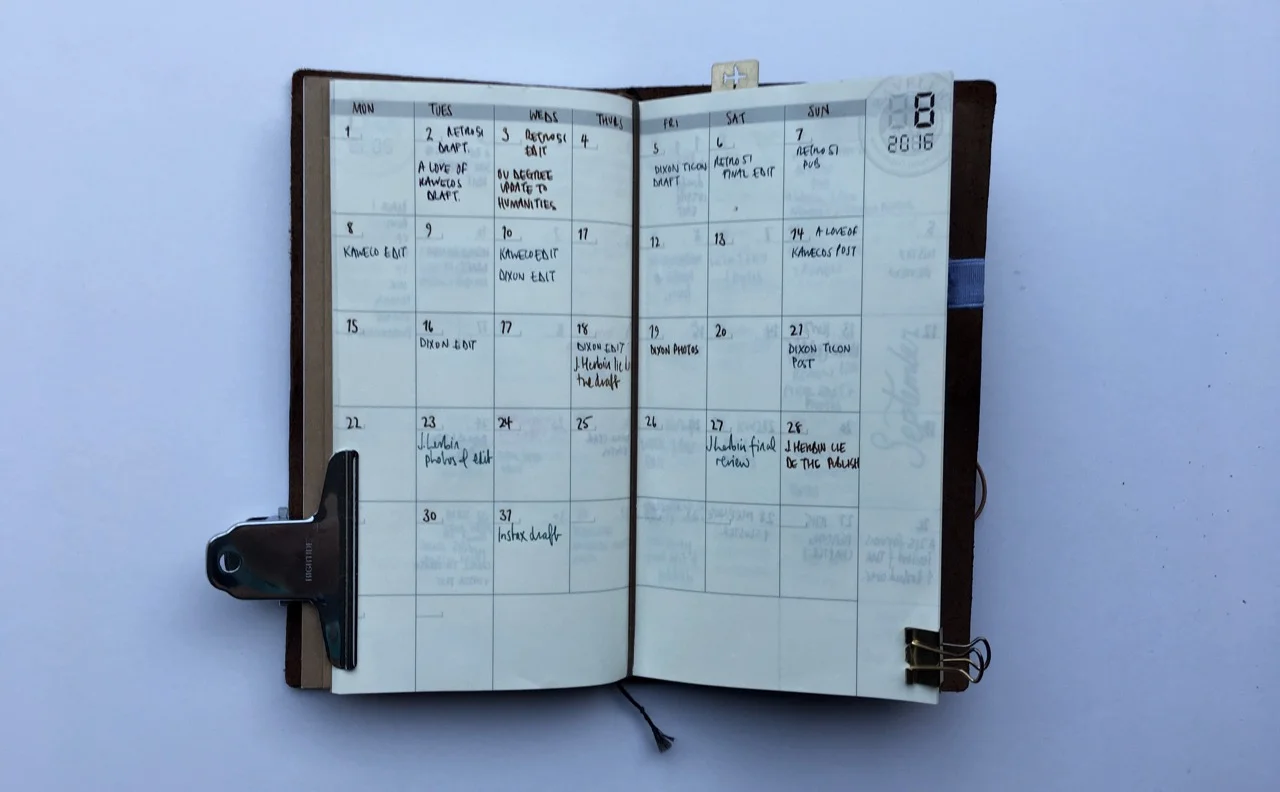 MON TUES WEDS THURS FRI SAT SUN
8
2016
1
2 RETRO 51
DRAFT.
A LOVE OF
KAWECOS
DRAFT.
3 RETRO 51
EDIT
OU DEGREE
UPDATE TO
HUMANITIES
4
5
DIXON TICON
DRAFT
6
RETRO 51
FINAL EDIT
7
RETRO 51
PUB
8
KAWECO EDIT
9
10
KAWECO EDIT
DIXON EDIT
11
12
13
14 A LOVE OF
KAWECOS POST
15
16
DIXON EDIT
17
18
DIXON EDIT
J.Herbin lie
the draft
19
DIXON PHOTOS
20
21
DIXON TICON
POST
22
23
J.Herbin
photos & edit
24
25
26
27
J herbin final
review
28
J. HERBIN LIE
DE THE PUBLISH
30
31
Instax draft
HIGHTIDE